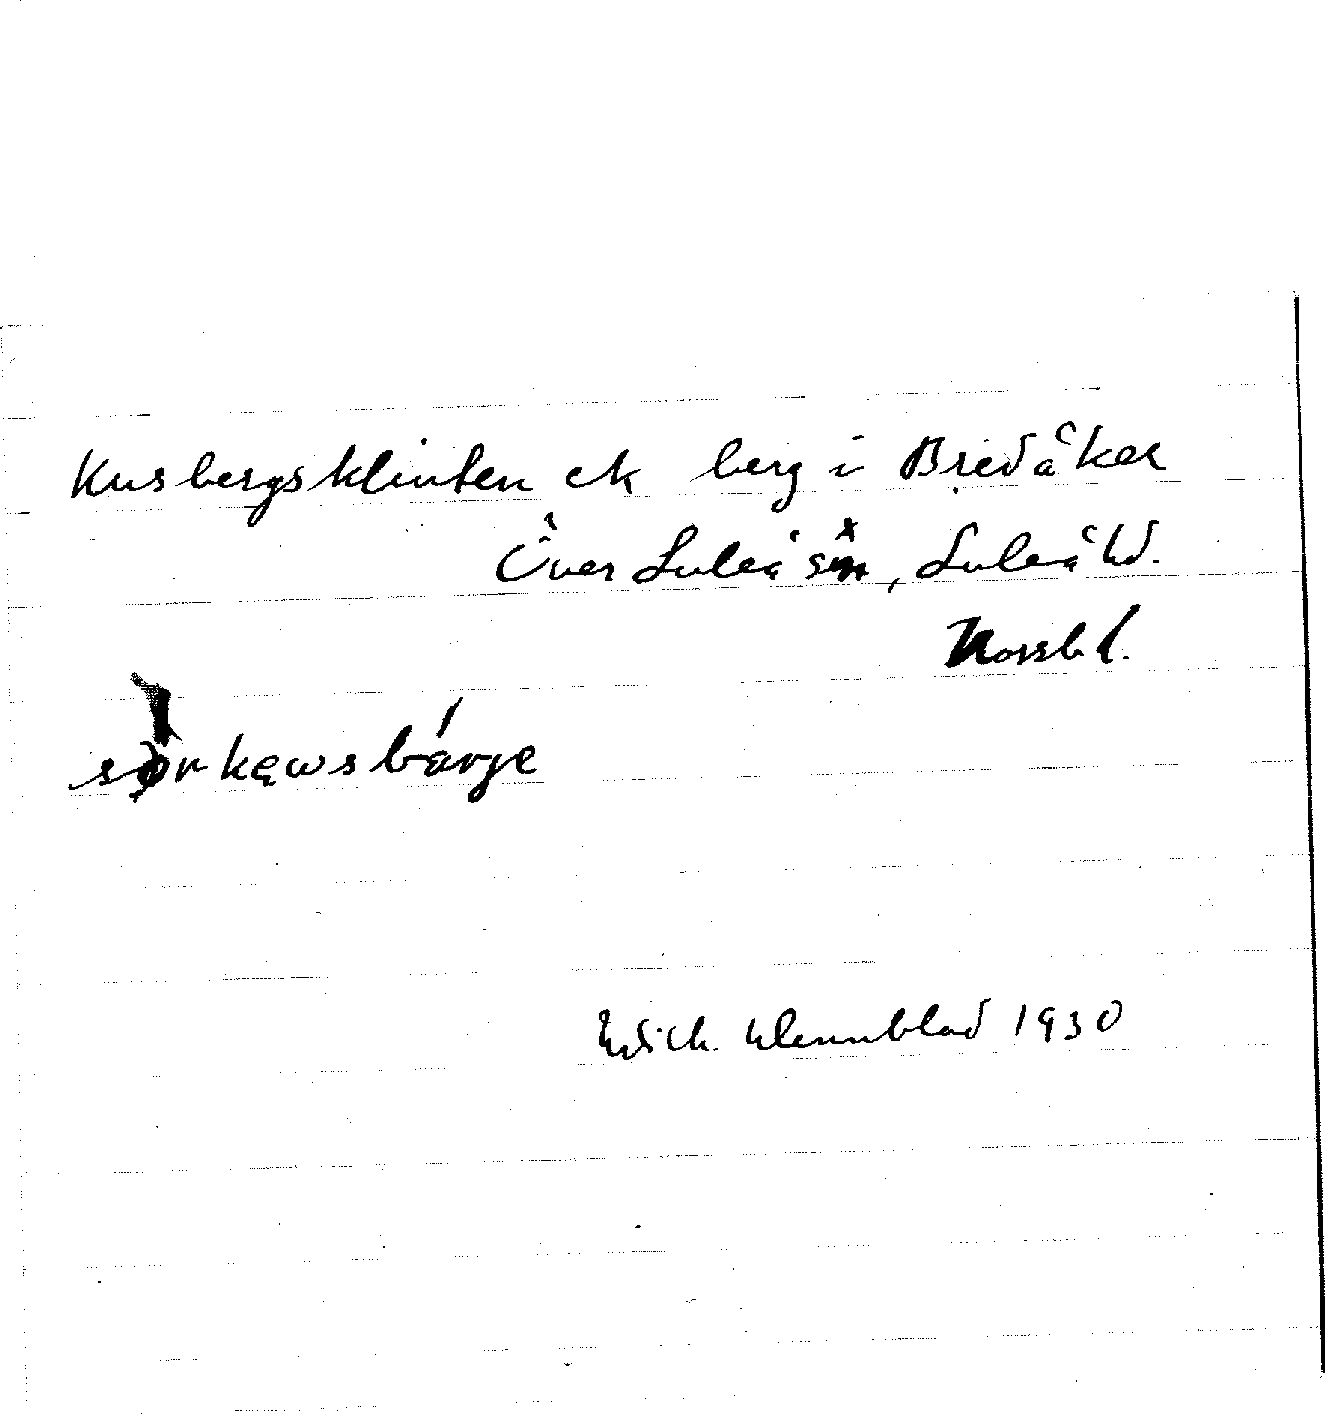 Kusbergsklinten ek berg i Bredåker
Över Luleå sn, Luleå hd.
Norrb l.
sørkawsbárje
Wennblad 1930